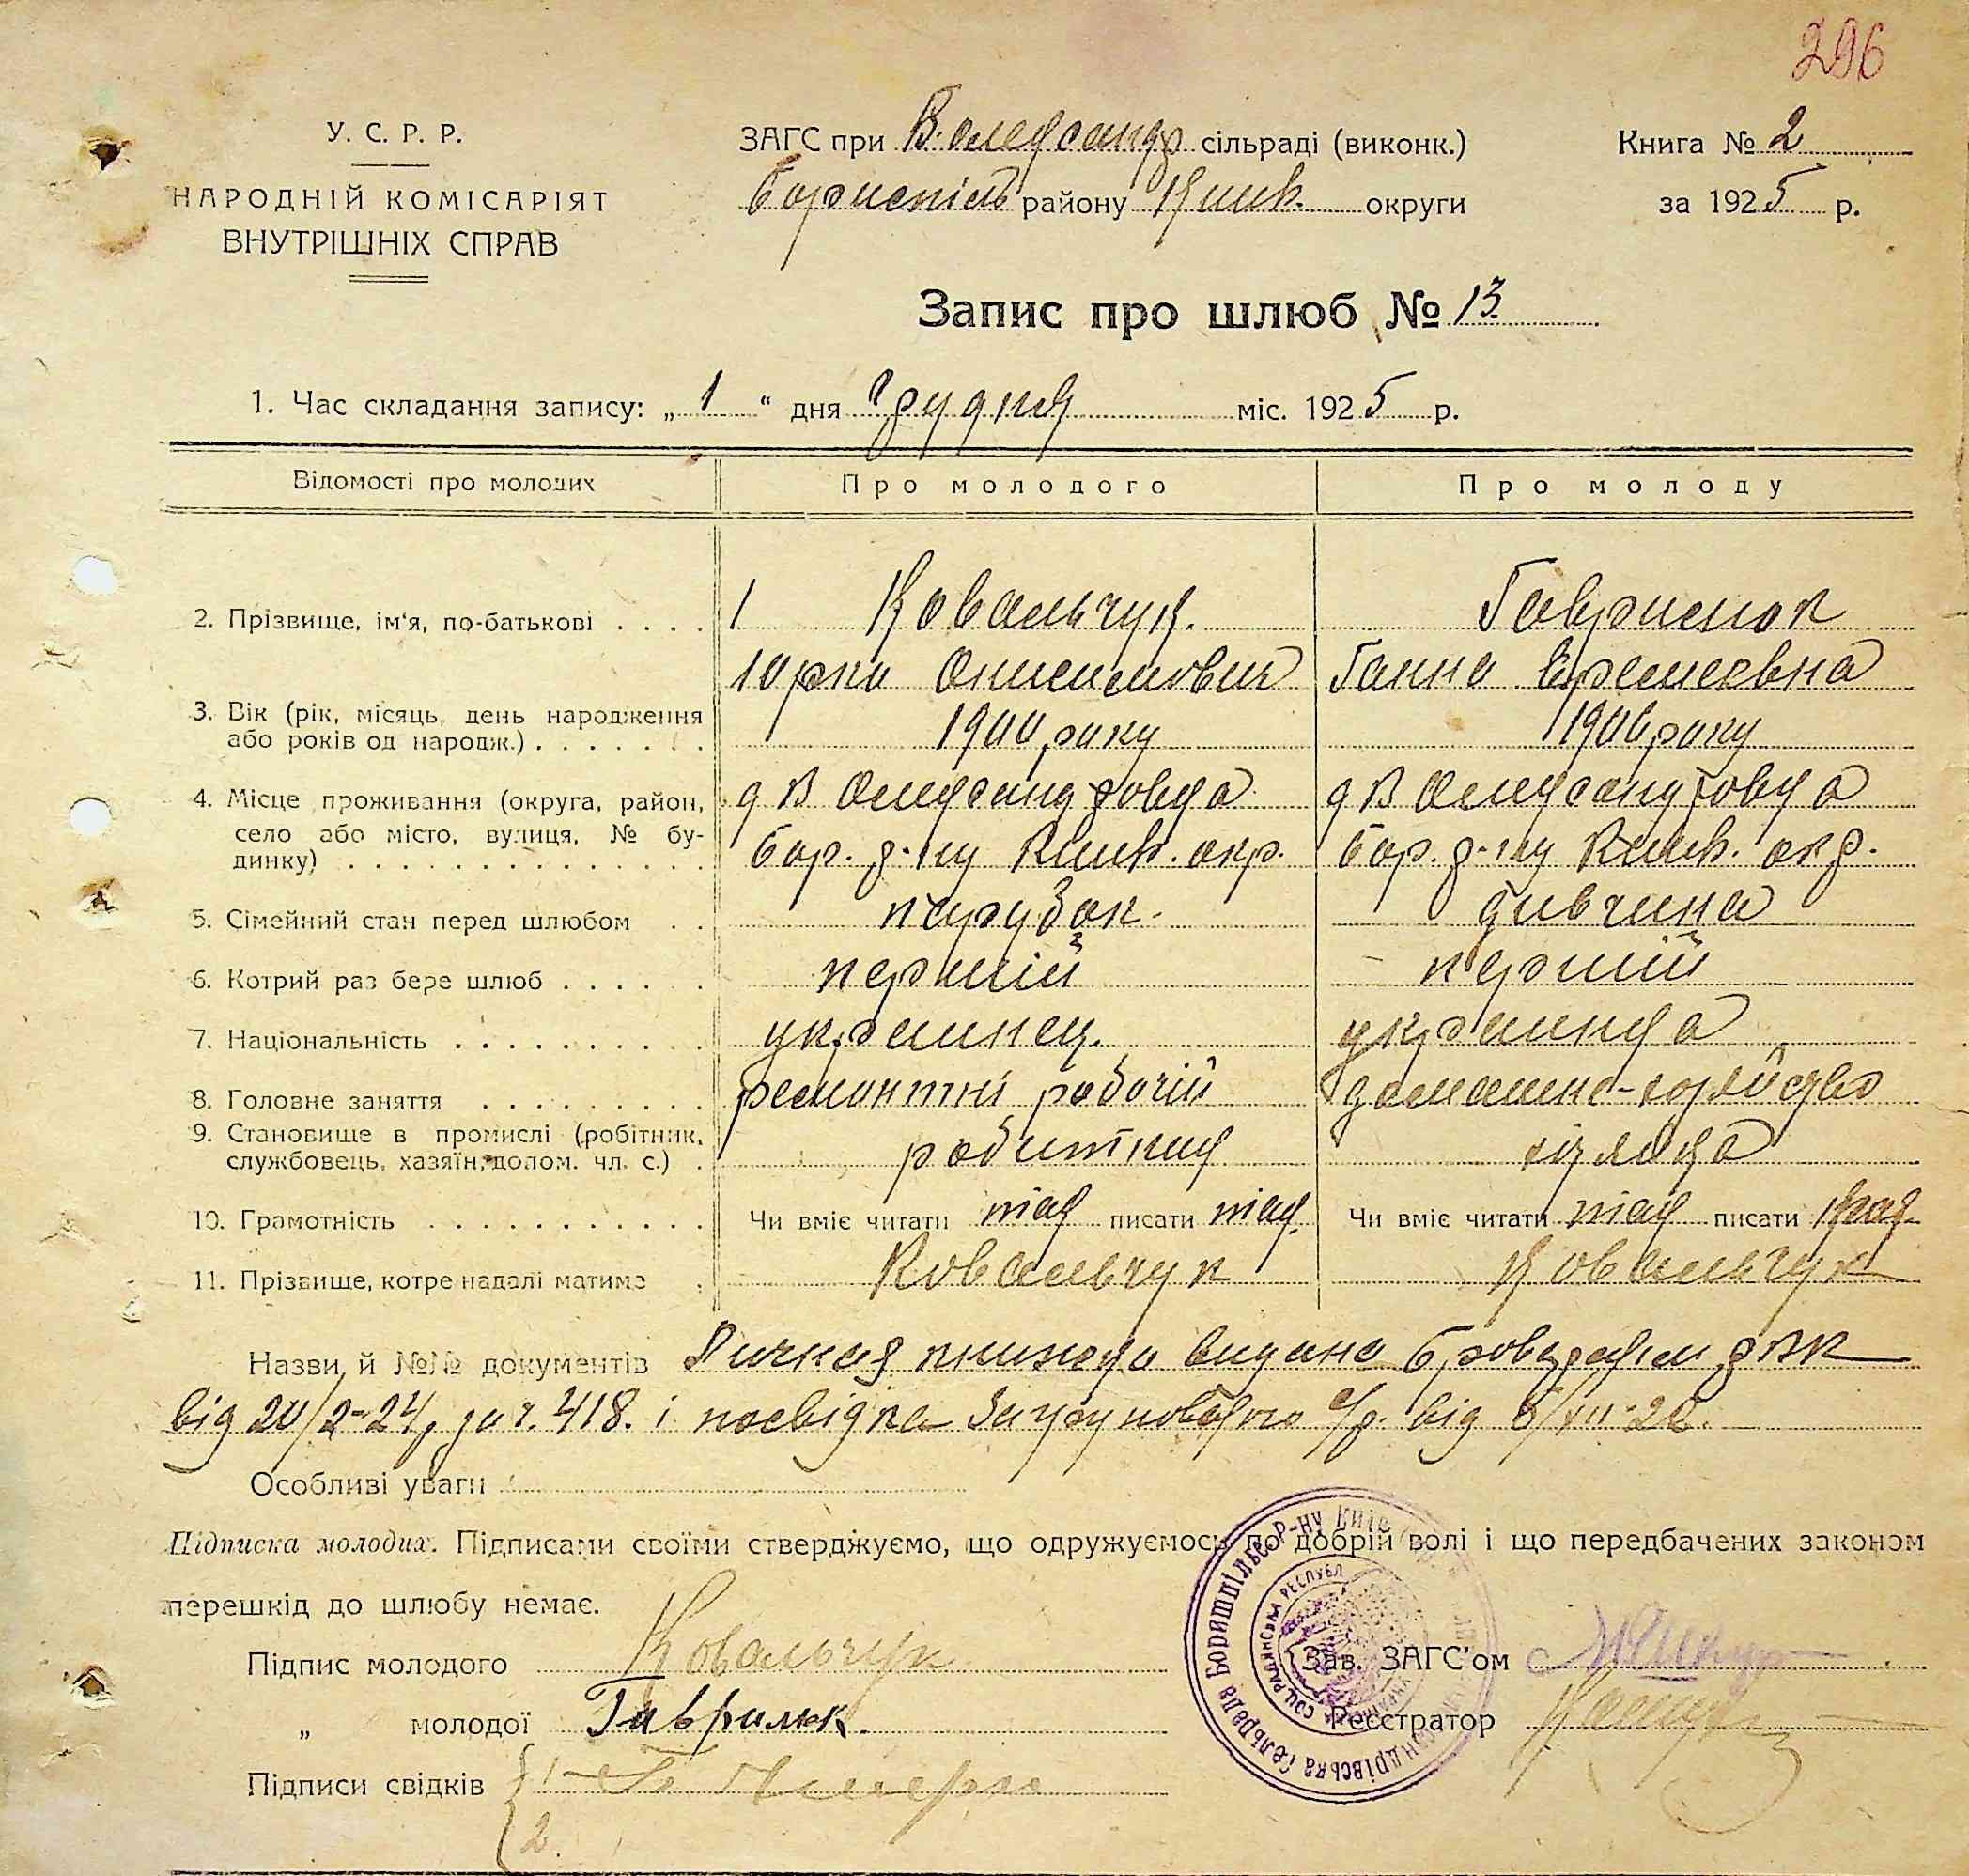 296
У. С. Р. Р.
НАРОДНІЙ КОМІСАРІЯТ
ВНУТРІШНІХ СПРАВ
ЗАГС при В. Олександр сільраді (виконк.)
Бориспіль району Київ. округи
Книга № 2
за 1925 р.
Запис про шлюб № 13
1. Час складання запису: „ 1 “ дня Грудня міс. 1925 р.
Відомості про молодих
Про молодого
Про молоду
2. Прізвище, ім'я, по-батькові
1 Ковальчук.
Юрко Онисимович
Гаврилюк
Ганна Еремеевна
3. Вік (рік, місяць, день народження
або років од народж.)
1900 року
1906 року
4. Місце проживання (округа, район,
село або місто, вулиця, № бу-
динку)
д В Олександровка
Бор. р-ну Київ. окр.
д В Олександровка
Бор. р-ну Київ. окр.
5. Сімейний стан перед шлюбом
парубок.
дивчина
6. Котрий раз бере шлюб
перший
перший
7. Національність
украинец.
украинка
8. Головне заняття
ремонтні робочій
домашне-
9. Становище в промислі (робітник,
службовець, хазяїн, допом. чл. с.)
робитник
10. Грамотність
Чи вміє читати так писати так.
Чи вміє читати так писати так
11. Прізвище, котре надалі матиме
Ковальчук
Ковальчук
Назви й №№ документів Личная книжка видана Броварским РВК
від 20/2-24, за ч. 418. і посвідка с/р. від
Особливі уваги
Підписка молодих. Підписами своїми стверджуємо, що одружуємось по добрій волі і що передбачених законом
перешкід до шлюбу немає.
Підпис молодого Ковальчук
„ молодої Гаврилюк.
Підписи свідків 1
2.
Зав. ЗАГС'ом
Реєстратор